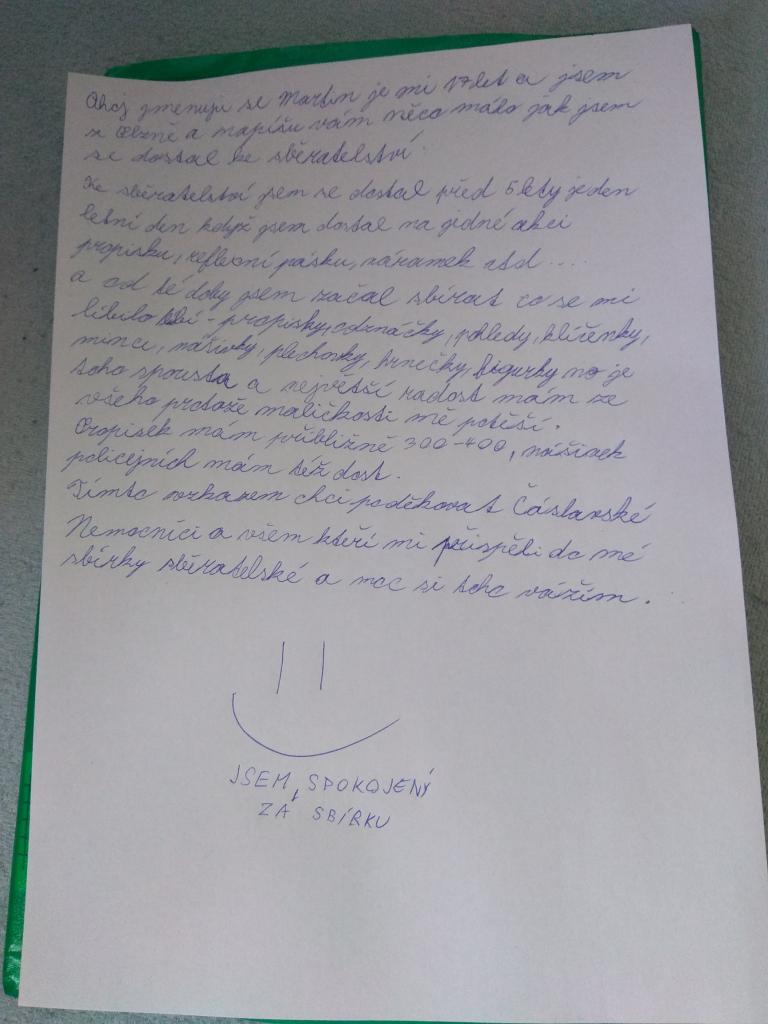 Ahoj jmenuji se Martin je mi 17 let a jsem
z Plzně a napíšu vám něco málo jak jsem
se dostal ke sběratelství.
Ke sběratelství jsem se dostal před 5 lety jeden
letní den když jsem dostal na jedné akci
propisku, reflexní pásku, náramek atd....
a od té doby jsem začal sbírat co se mi
líbilo - propisky, odznáčky, pohledy, klíčenky,
mince, nášivky, plechovky, hrnečky, figurky no je
toho spousta a největší radost mám ze
všeho protože maličkosti mě potěší.
Propisek mám přibližně 300-400, nášivek
policejních mám též dost.
Tímto vzkazem chci poděkovat Čáslavské
Nemocnici a všem kteří mi přispěli do mé
sbírky sběratelské a moc si toho vážím.
JSEM, SPOKOJENÝ
ZA SBÍRKU